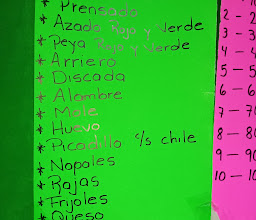 * Prensado
* Azado Rojo y Verde
* Peya Rojo y Verde
* Arriero
* Discada
* Alambre
* Mole
* Huevo
* Picadillo c/s chile
* Nopales
* Rajas
* Frijoles
* Queso
2 - 2
3 - 3
4 - 4
5 - 5
6 - 6
7 - 70
8 - 80
9 - 90
10 - 10